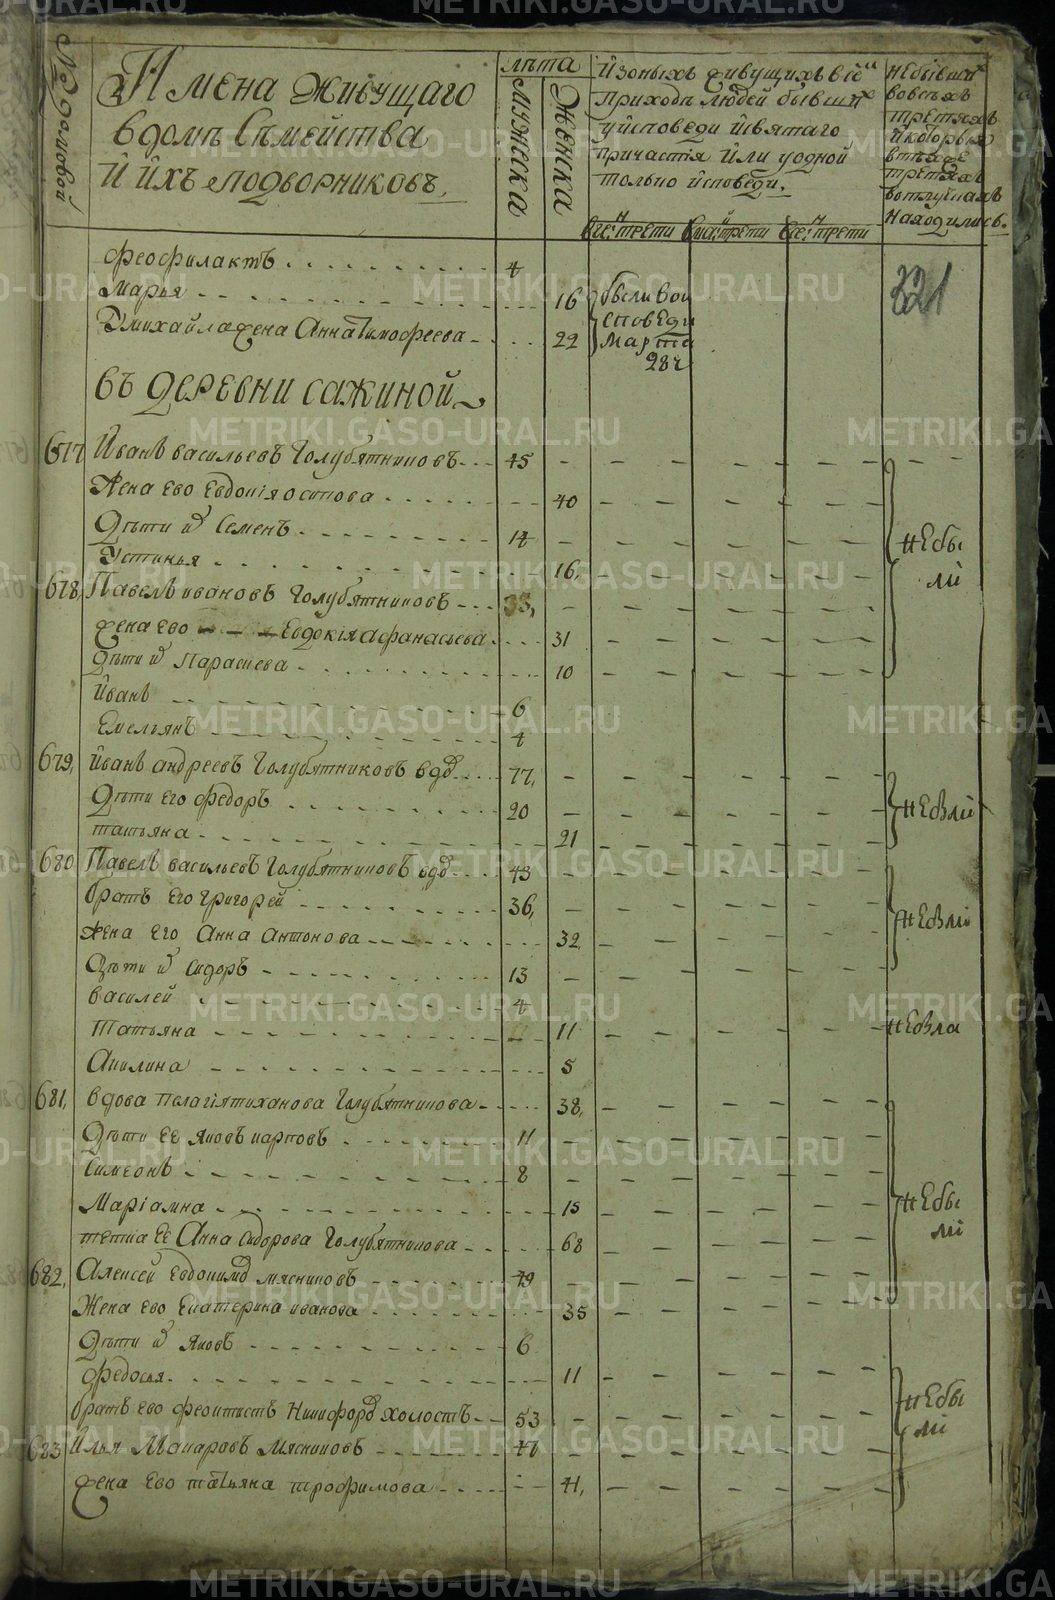 № домовой
Имена живущаго
в домѣ Сѣмейства
И ихъ подворниковъ.
лѣта
Мужеска
Женска
Изоныхъ живущихъ в сеи
приходѣ людей бывши
у исповеди й святаго
причастія или уодной
только исповеди.
трети
трети
трети
не бывши
во всехъ
третяхъ
и которыя
в
третяхъ
в отлучкахъ
находились.
321
Феофилактъ 4
Марья 16
У михайла жена Анна тимофеева 22
были во и
споведи
марта
28 ч
въ деревни сажиной
677 Иванъ васильевъ Голубятниковъ 45
Жена ево Евдокія осипова 40
Дѣти и Семенъ 14
Устинья 16
небы
ли
678, Павелъ ивановъ Голубятниковъ 33,
жена ево Евдокія афанасьева 31
Дѣти и Парасиева 10
Иванъ 6
Емельянъ 4
679, Иванъ андреевъ Голубятниковъ вд 77,
Дѣти его Федоръ 20
татьяна 21
небыли
680 Павелъ васильевъ Голубятниковъ вд 43
братъ его григорей 36,
жена его Анна Антонова 32
Дѣти и Сидоръ 13
василей 4
Татьяна 11
Акилина 5
небыли
небыла
681, вдова пелагія тиханова Голубятникова 38,
Дѣти ее яковъ карповъ 11
Симеонъ 8
Маріамна 15
тетка ее Анна Сидорова Голубятникова 68
небы
ли
682, Алексей Евдокимо мясниковъ 49
Жена ево Екатерина иванова 35
Дѣти и яковъ 6
Федосья 11
братъ ево феоктистъ Никифоро холостъ 53
небы
ли
683 Илья Макаровъ мясниковъ 47
жена ево татьяна трофимова 41,
METRIKI.GASO-URAL.RU